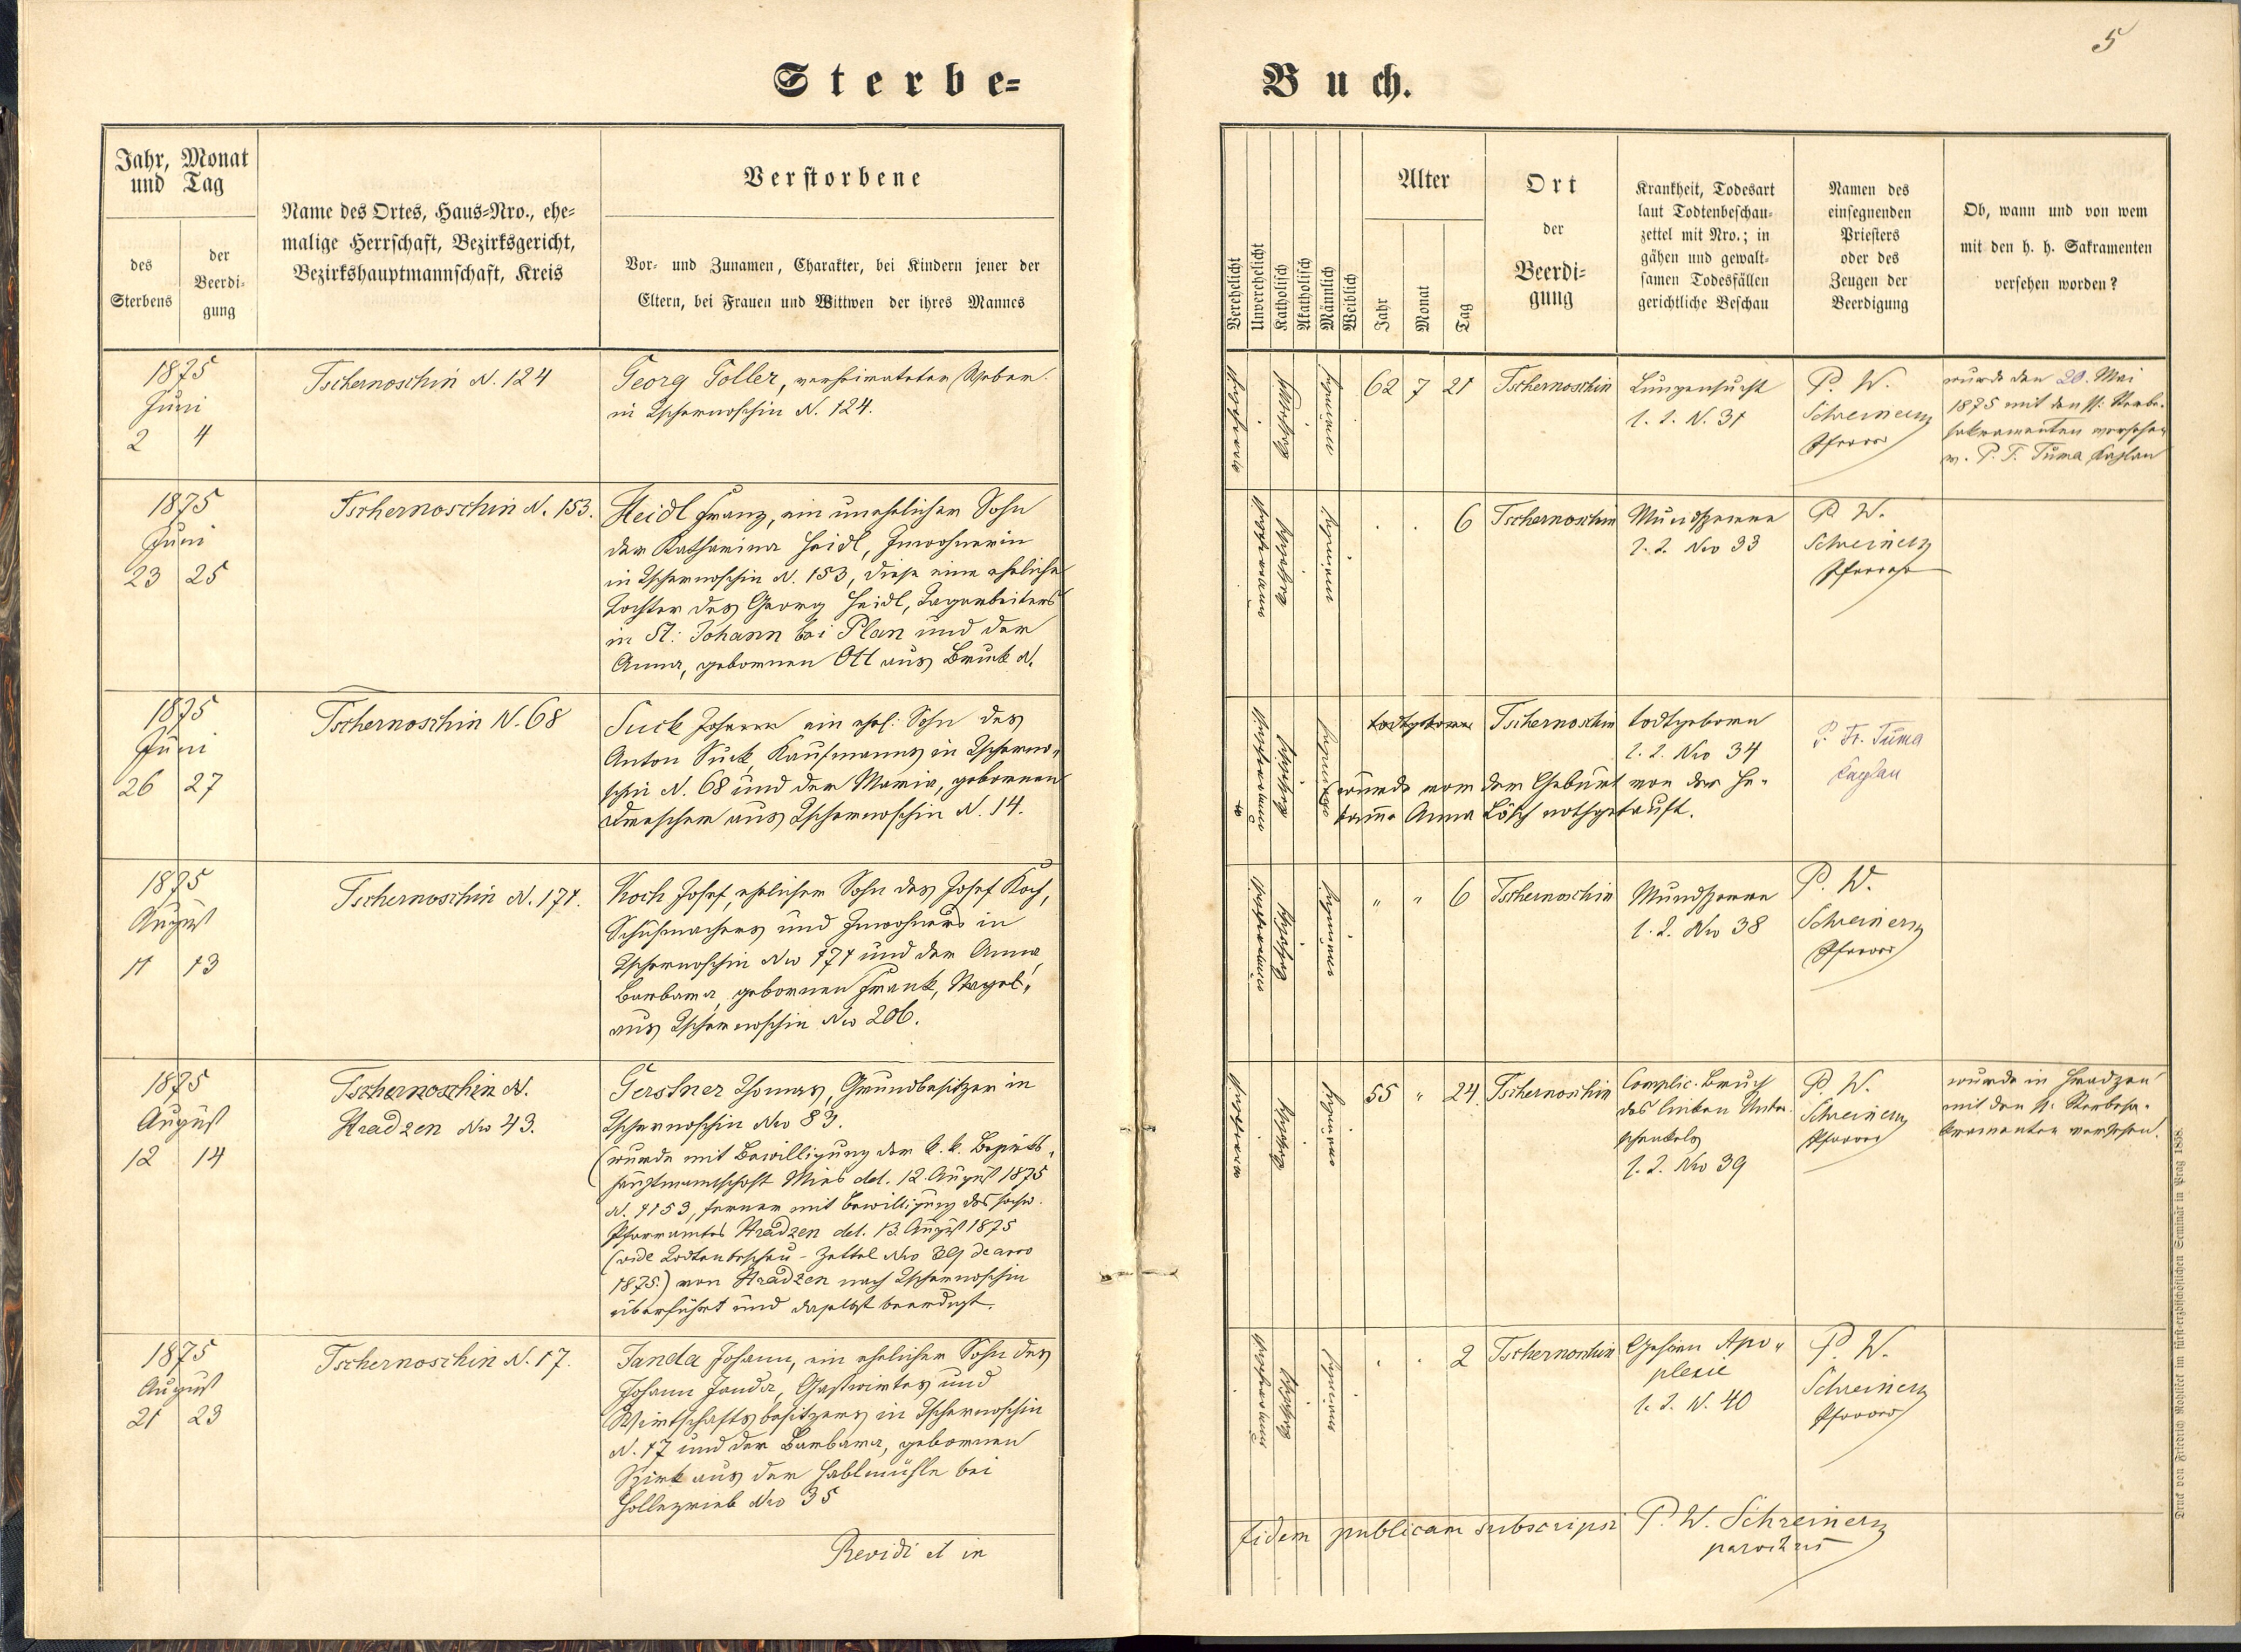 5
Sterbe-Buch.
Jahr, Monat
und Tag
des
Sterbens
der
Beerdi-
gung
Name des Ortes, Haus-Nro., ehe-
malige Herrschaft, Bezirksgericht,
Bezirkshauptmannschaft, Kreis
Verstorbene
Vor- und Zunamen, Charakter, bei Kindern jener der
Eltern, bei Frauen und Wittwen der ihres Mannes
Verehelicht
Unverehelicht
Katholisch
Akatholisch
Männlich
Weiblich
Alter
Jahr
Monat
Tag
Ort
der
Beerdi-
gung
Krankheit, Todesart
laut Todtenbeschau-
zettel mit Nro.; in
gähen und gewalt-
samen Todesfällen
gerichtliche Beschau
Namen des
einsegnenden
Priesters
oder des
Zeugen der
Beerdigung
Ob, wann und von wem
mit den h. h. Sakramenten
versehen worden?
1875
Juni
2 4
Tschernoschin N. 124
Georg Toller, verheirateter Weber
in Tschernoschin N. 124.
62 7 21
Tschernoschin
Lungensucht
l. Z. N. 31
P. W.
Schreinerz
Pfarrer
wurde den 20. Mai
1875 mit den hl: Sterbe-
sakramenten versehen
v. P. F. Tuma Kaplan
1875
Juni
23 25
Tschernoschin N. 153.
Heidl Franz, ein unehelicher Sohn
der Katharina Heidl, Inwohnerin
in Tschernoschin N. 153, diese eine eheliche
Tochter des Georg Heidl, Tagarbeiters
in St: Johann bei Plan und der
Anna, gebornen Ott aus Bruck N.
. . 6
Tschernoschin
Mundsperre
l. Z. Nro 33
P. W.
Schreinerz
Pfarrer
1875
Juni
26 27
Tschernoschin N. 68
Suck Johann ein ehel: Sohn des
Anton Suck, Kaufmanns in Tscherno-
schin N. 68 und der Maria, gebornen
Drescher aus Tschernoschin N. 14.
todtgeboren
Tschernoschin
todtgeboren
l. Z. Nro 34
wurde vor der Geburt von der He-
bamme Anna Lösch nothgetauft.
P. Fr. Tuma
Kaplan
1875
August
11 13
Tschernoschin N. 171.
Koch Josef, ehelicher Sohn des Josef Koch,
Schuhmachers und Inwohners in
Tschernoschin Nro 171 und der Anna
Barbara, gebornen Frank,
aus Tschernoschin Nro 206.
" " 6
Tschernoschin
Mundsperre
l. Z. Nro 38
P. W.
Schreinerz
Pfarrer
1875
August
12 14
Tschernoschin N.
Hradzen Nro 43.
Gerstner Thomas, Grundbesitzer in
Tschernoschin Nro 83.
(wurde mit Bewilligung der k. k. Bezirks-
hauptmannschaft Mies ddt. 12. August 1875
N. 7153, ferner mit Bewilligung des hochw.
Pfarramtes Hradzen ddt. 13. August 1875
(vide Todtenbeschau-Zettel Nro 39 de anno
1875.) von Hradzen nach Tschernoschin
überführt und daselbst beerdigt.
55 " 24
Tschernoschin
Complic. Bruch
des linken Unter-
schenkels
l. Z. Nro 39
P. W.
Schreinerz
Pfarrer
wurde in Hradzen
mit den hl. Sterbesa-
kramenten versehen.
1875
August
21 23
Tschernoschin N. 17.
Janda Johann, ein ehelicher Sohn des
Johann Janda, Gastwirtes und
Wirtschaftsbesitzers in Tschernoschin
N. 17 und der Barbara, gebornen
Spirk aus der Hablmühle bei
Hollezrieb Nro 35
. . 2
Tschernoschin
Gehirn Apo-
plexie
l. Z. N. 40
P. W.
Schreinerz
Pfarrer
Revidi et in fidem publicam subscripsi P. W. Schreinerz
parochus
Druck von Friedrich Rohliček im fürst-erzbischöflichen Seminär in Prag 1858.